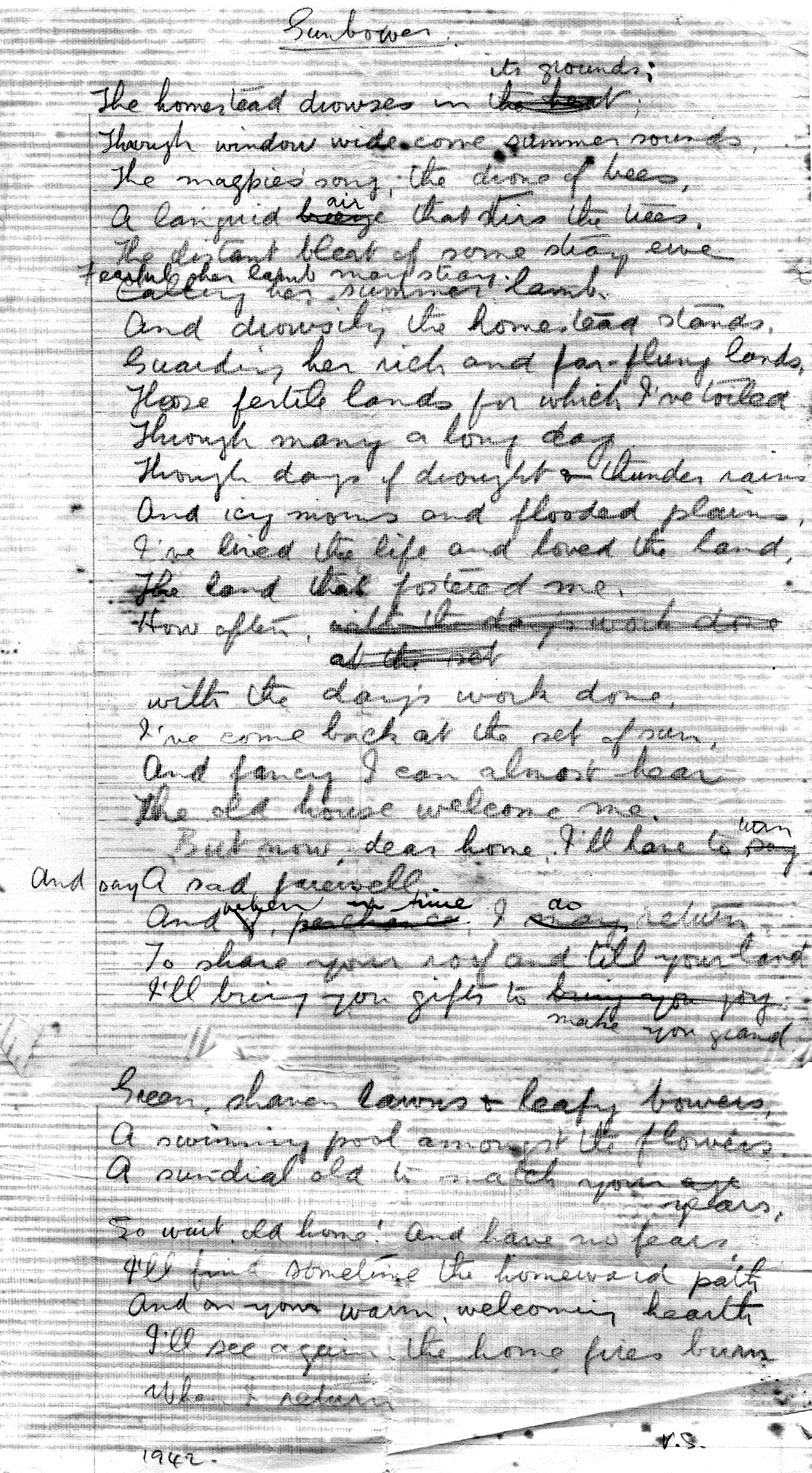 Gunbower.
its grounds;
The homestead drowses in the heat;
Through window wide come summer sounds,
The magpies' song, the drone of bees,
air
A languid breeze that stirs the trees.
The distant bleat of some stray ewe
Fearful her lamb may stray.
Calling her summer lamb.
And drowsily the homestead stands,
Guarding her rich and far-flung lands,
Those fertile lands for which I've toiled
Through many a long day.
Through days of drought & thunder rains
And icy morns and flooded plains,
I've lived the life and loved the land,
The land that fostered me.
How often, with the day's work done
at the set
with the day's work done,
I've come back at the set of sun,
And fancy I can almost hear
The old house welcome me.
turn
But now, dear home, I'll have to say
And say A sad farewell.
when in time do
And, perchance, I may return
To share your roof and till your land
I'll bring you gifts to bring you joy
make you grand
Green, shaven lawns & leafy bowers,
A swimming pool amongst the flowers.
A sundial old to match your age
years,
So wait, old home! And have no fears,
I'll find sometime the homeward path
And on your warm, welcoming hearth
I'll see again the home fires burn
When I return
1942.
V.S.